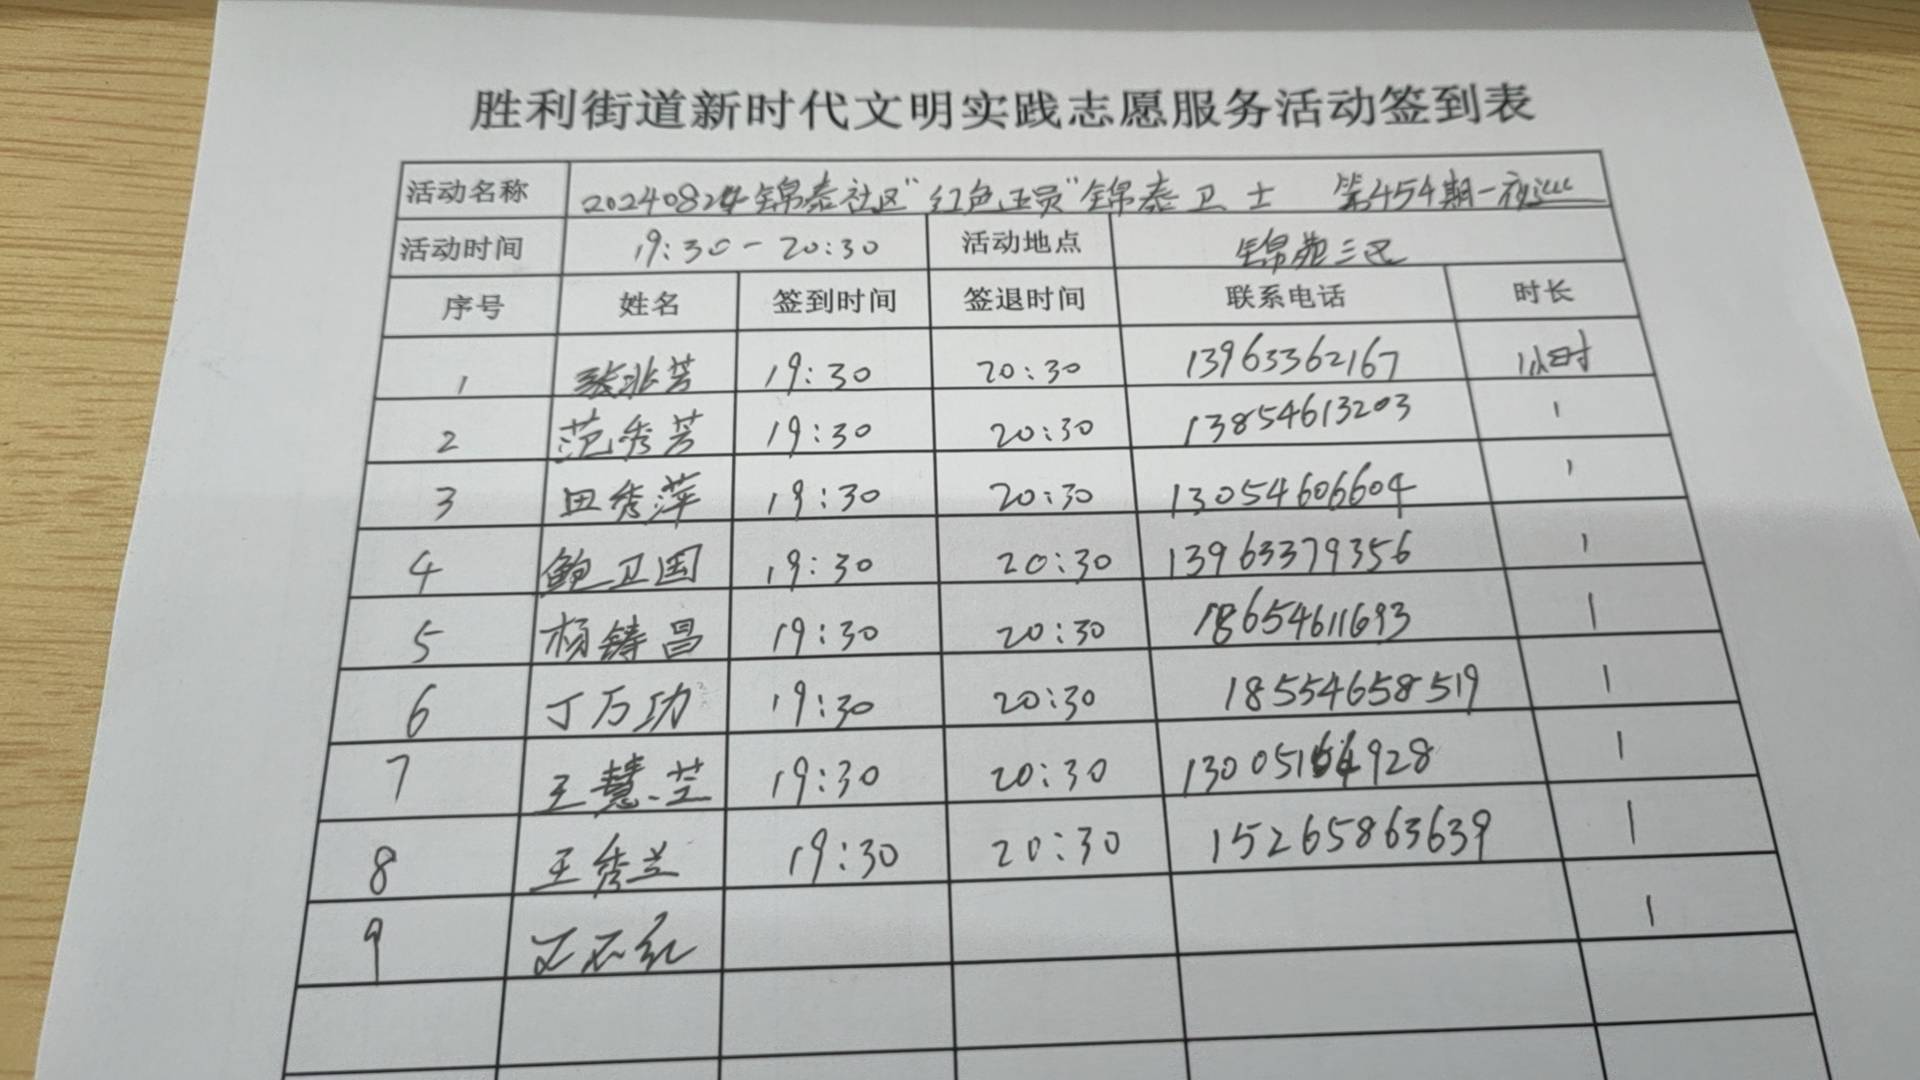 胜利街道新时代文明实践志愿服务活动签到表
活动名称 20240824锦泰社区"红色卫员"锦泰卫士 第454期一夜巡
活动时间 19:30-20:30 活动地点 锦苑三区
序号 姓名 签到时间 签退时间 联系电话 时长
1 张兆芳 19:30 20:30 13963362167 1小时
2 范秀芳 19:30 20:30 13854613203 1
3 田秀萍 19:30 20:30 13054606604 1
4 鲍卫国 19:30 20:30 13963379356 1
5 杨铸昌 19:30 20:30 18654611693 1
6 丁万功 19:30 20:30 18554658519 1
7 王慧芝 19:30 20:30 13005164928 1
8 王秀兰 19:30 20:30 15265863639 1
9 1